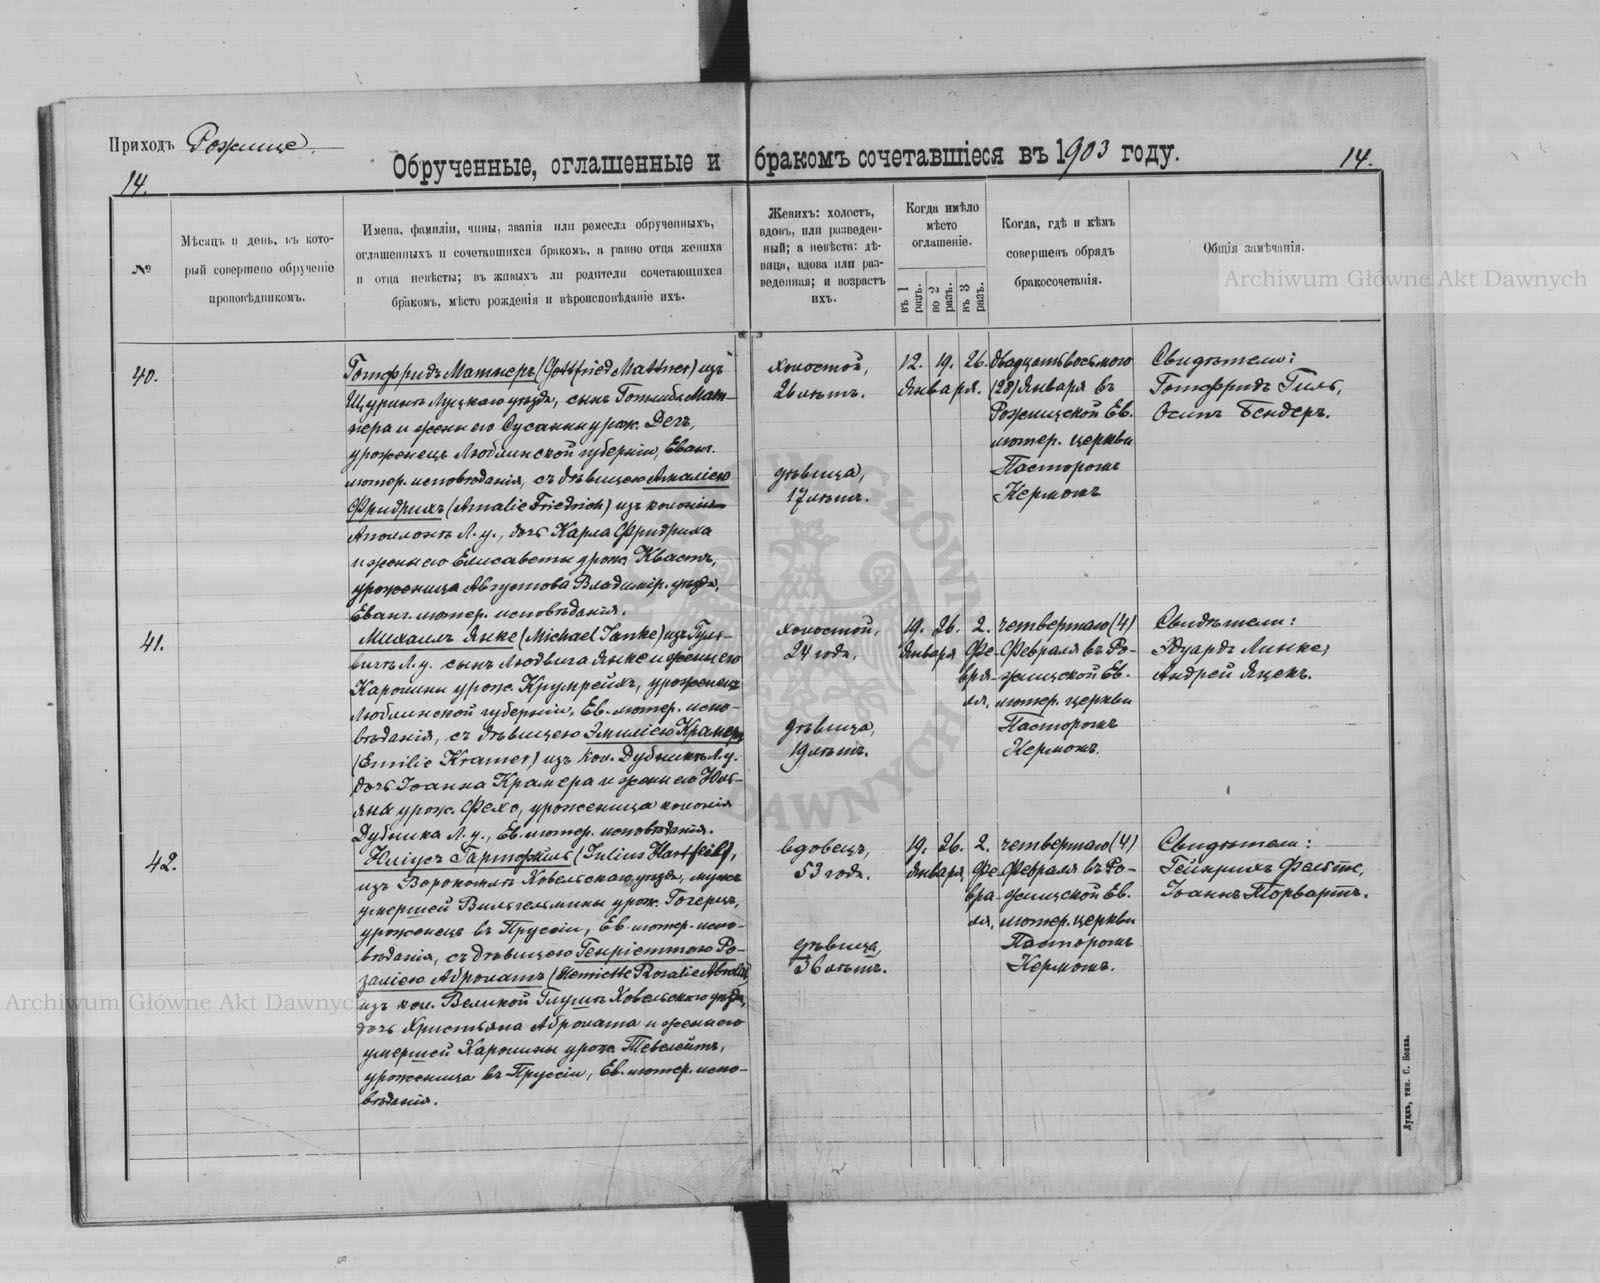 Приходъ Рожище.
Обрученные, оглашенные и бракомъ сочетавшіеся въ 1903 году.
14.
14.
№
Мѣсяцъ и день, въ кото-
рый совершено обрученіе
проповѣдникомъ.
Имена, фамиліи, чины, званія или ремесла обрученныхъ,
оглашенныхъ и сочетавшихся бракомъ, а равно отца жениха
и отца невѣсты; въ живыхъ ли родители сочетающихся
бракомъ, мѣсто рожденія и вѣроисповѣданіе ихъ.
Женихъ: холостъ,
вдовъ, или разведен-
ный; а невѣста: дѣ-
вица, вдова или раз-
веденная; и возрастъ
ихъ.
Когда имѣло
мѣсто
оглашеніе.
въ 1 разъ.
во 2 разъ.
въ 3 разъ.
Когда, гдѣ и кѣмъ
совершенъ обрядъ
бракосочетанія.
Общія замѣчанія.
Archiwum Główne Akt Dawnych
40.
Готфридъ Матнеръ (Gottfried Mattner) изъ
Щуринъ Луцкаго уѣзда, сынъ Готлиба Мат-
нера и жены его Сусанны урож. Дегъ,
уроженецъ Люблинской губерніи, Еванг.
лютер. исповѣданія, съ дѣвицею Амаліею
Фридрихъ (Amalie Friedrich) изъ колоніи
Аполлонъ Л. у., дочь Карла Фридриха
и жены его Елисаветы урож. Квастъ,
уроженица Августова Владимір. уѣзда,
Еванг. лютер. исповѣданія.
холостой,
26 лѣтъ.
дѣвица,
17 лѣтъ.
12. 19. 26.
Января.
двадцать восьмого
(28) Января въ
Рожищской Ев.
лютер. церкви
Пасторомъ
Кермомъ
Свидѣтели:
Готфридъ Гиль,
Осипъ Бендеръ.
41.
Михаилъ Янке (Michael Janke) изъ Гуль-
вичъ Л. у. сынъ Людвига Янке и жены его
Каролины урож. Крумрейхъ, уроженецъ
Люблинской губерніи, Ев. лютер. испо-
вѣданія, съ дѣвицею Эмиліею Крамеръ
(Emilie Kramer) изъ кол. Дубники Л. у.
дочь Іоанна Крамера и жены его Юлі-
яна урож. Фехо, уроженица колоніи
Дубника Л. у., Ев. лютер. исповѣданія.
холостой,
24 года.
дѣвица,
19 лѣтъ.
19. 26. 2.
Января Фе-
вра-
ля.
четвертаго (4)
Февраля въ Ро-
жищской Ев.
лютер. церкви
Пасторомъ
Кермомъ.
Свидѣтели:
Эдуардъ Линке,
Андрей Яцекъ.
42.
Юліусъ Гартфиль (Julius Hartfeil),
изъ Ворокомлъ Ковельскаго уѣзда, мужъ
умершей Вильгельмины урож. Гогерцъ,
уроженецъ въ Пруссіи, Ев. лютер. испо-
вѣданія, съ дѣвицею Генріеттою Ро-
заліею Абролатъ (Henriette Rosalie Abrolat)
изъ кол. Великой Глушъ Ковельскаго уѣзда,
дочь Христьяна Абролата и жены его
умершей Каролины урож. Тевелейтъ,
уроженица въ Пруссіи, Ев. лютер. испо-
вѣданія.
вдовецъ,
53 года.
дѣвица,
36 лѣтъ.
19. 26. 2.
Января Фе-
вра-
ля.
четвертаго (4)
Февраля въ Ро-
жищской Ев.
лютер. церкви
Пасторомъ
Кермомъ.
Свидѣтели:
Гейнрихъ Фельске,
Іоаннъ Торвартъ.
Archiwum Główne Akt Dawnych
Луцкъ, тип. С. Бокса.